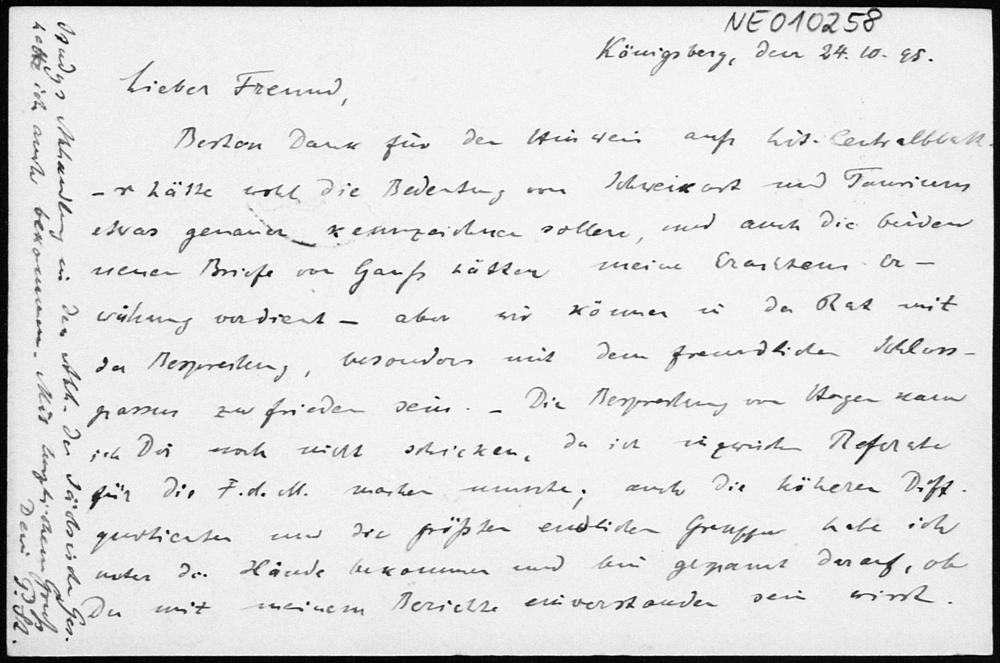 NE010258
Königsberg, den 24.10.95.
Lieber Freund,
Besten Dank für den Hinweis aufs Lit. Centralblatt.
– Er hätte wohl die Bedeutung von Schweikart und Taurinus
etwas genauer kennzeichnen sollen, und auch die beiden
neuen Briefe von Gauß hätten meines Erachtens Er–
wähnung verdient – aber wir können in der Tat mit
der Besprechung, besonders mit dem freundlichen Schluss–
passus zufrieden sein. – Die Besprechung von Hagen kann
ich Dir noch nicht schicken, da ich inzwischen Referate
für die F.d.M. machen musste; auch die höheren Diff.
quotienten und die größten endlichen Gruppen habe ich
unter die Hände bekommen und bin gespannt darauf, ob
Du mit meinem Berichte einverstanden sein wirst.
Abhandlung in den Abh. der Sächsischen Ges.
hatte ich auch bekommen. Mit herzlichem Gruß
Dein P. St.